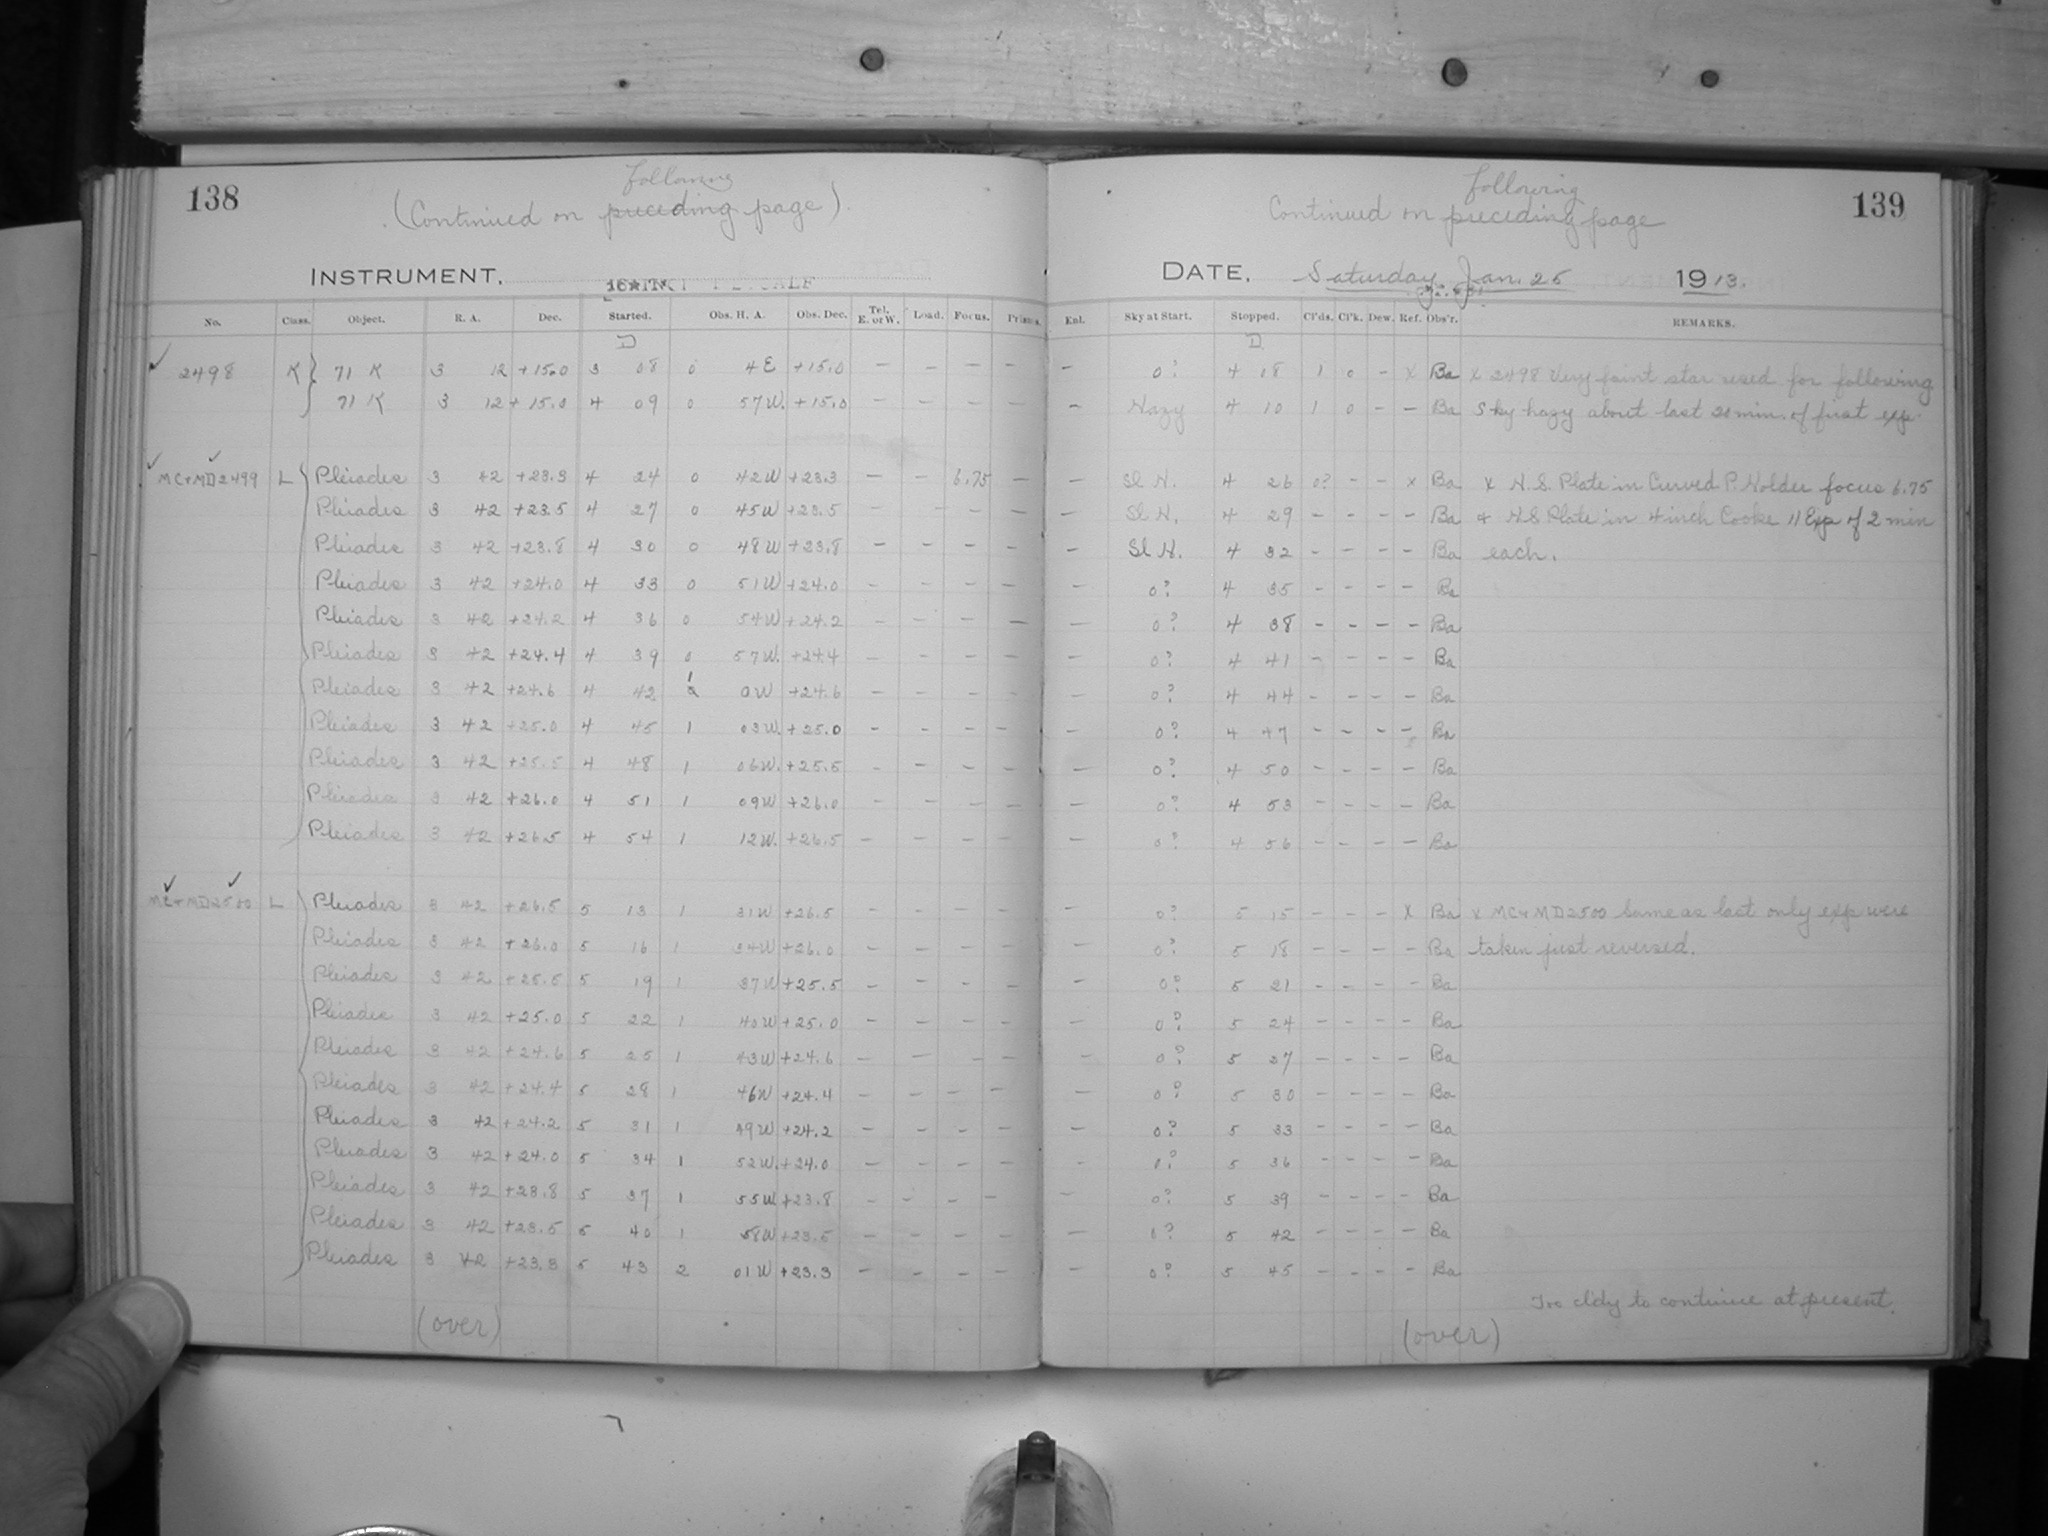 138
following
(Continued on preceding page).
INSTRUMENT.
No. Class. Object. R. A. Dec. Started. Obs. H. A. Obs. Dec. Tel. E. or W. Load. Focus. Prisms.
D
2498 K 71 K 3 12 +15.0 3 08 0 4 E +15.0 - - - -
71 K 3 12 +15.0 4 09 0 57 W. +15.0 - - - -
MC+MD2499 L Pleiades 3 42 +23.3 4 24 0 42 W +23.3 - - 6.75 -
Pleiades 3 42 +23.5 4 27 0 45 W +23.5 - - - -
Pleiades 3 42 +23.8 4 30 0 48 W +23.8 - - - -
Pleiades 3 42 +24.0 4 33 0 51 W +24.0 - - - -
Pleiades 3 42 +24.2 4 36 0 54 W +24.2 - - - -
Pleiades 3 42 +24.4 4 39 0 57 W. +24.4 - - - -
Pleiades 3 42 +24.6 4 42 1 0 W +24.6 - - - -
Pleiades 3 42 +25.0 4 45 1 03 W. +25.0 - - - -
Pleiades 3 42 +25.5 4 48 1 06 W. +25.5 - - - -
Pleiades 3 42 +26.0 4 51 1 09 W +26.0 - - - -
Pleiades 3 42 +26.5 4 54 1 12 W. +26.5 - - - -
MC+MD2500 L Pleiades 3 42 +26.5 5 13 1 31 W +26.5 - - - -
Pleiades 3 42 +26.0 5 16 1 34 W +26.0 - - - -
Pleiades 3 42 +25.5 5 19 1 37 W +25.5 - - - -
Pleiades 3 42 +25.0 5 22 1 40 W +25.0 - - - -
Pleiades 3 42 +24.6 5 25 1 43 W +24.6 - - - -
Pleiades 3 42 +24.4 5 28 1 46 W +24.4 - - - -
Pleiades 3 42 +24.2 5 31 1 49 W +24.2 - - - -
Pleiades 3 42 +24.0 5 34 1 52 W. +24.0 - - - -
Pleiades 3 42 +23.8 5 37 1 55 W +23.8 - - - -
Pleiades 3 42 +23.5 5 40 1 58 W +23.5 - - - -
Pleiades 3 42 +23.3 5 43 2 01 W +23.3 - - - -
(over)
139
following
Continued on preceding page
DATE. Saturday, Jan. 25 1913.
Enl. Sky at Start. Stopped. Cl'ds. Cl'k. Dew. Ref. Obs'r. REMARKS.
D
- 0? 4 08 1 0 - x Ba x 2498 Very faint star used for following
- Hazy 4 10 1 0 - - Ba Sky hazy about last 20 min. of first exp.
- Sl H. 4 26 0? - - x Ba x H.S. Plate in Curved P. Holder focus 6.75
- Sl H. 4 29 - - - - Ba + H.S Plate in 4 inch Cooke 11 Exp of 2 min
- Sl H. 4 32 - - - - Ba each.
- 0? 4 35 - - - - Ba
- 0? 4 38 - - - - Ba
- 0? 4 41 - - - - Ba
- 0? 4 44 - - - - Ba
- 0? 4 47 - - - - Ba
- 0? 4 50 - - - - Ba
- 0? 4 53 - - - - Ba
- 0? 4 56 - - - - Ba
- 0? 5 15 - - - x Ba x MC+MD2500 Same as last only exp were
- 0? 5 18 - - - - Ba taken just reversed.
- 0? 5 21 - - - - Ba
- 0? 5 24 - - - - Ba
- 0? 5 27 - - - - Ba
- 0? 5 30 - - - - Ba
- 0? 5 33 - - - - Ba
- 0? 5 36 - - - - Ba
- 0? 5 39 - - - - Ba
- 0? 5 42 - - - - Ba
- 0? 5 45 - - - - Ba
Too cldy to continue at present.
(over)